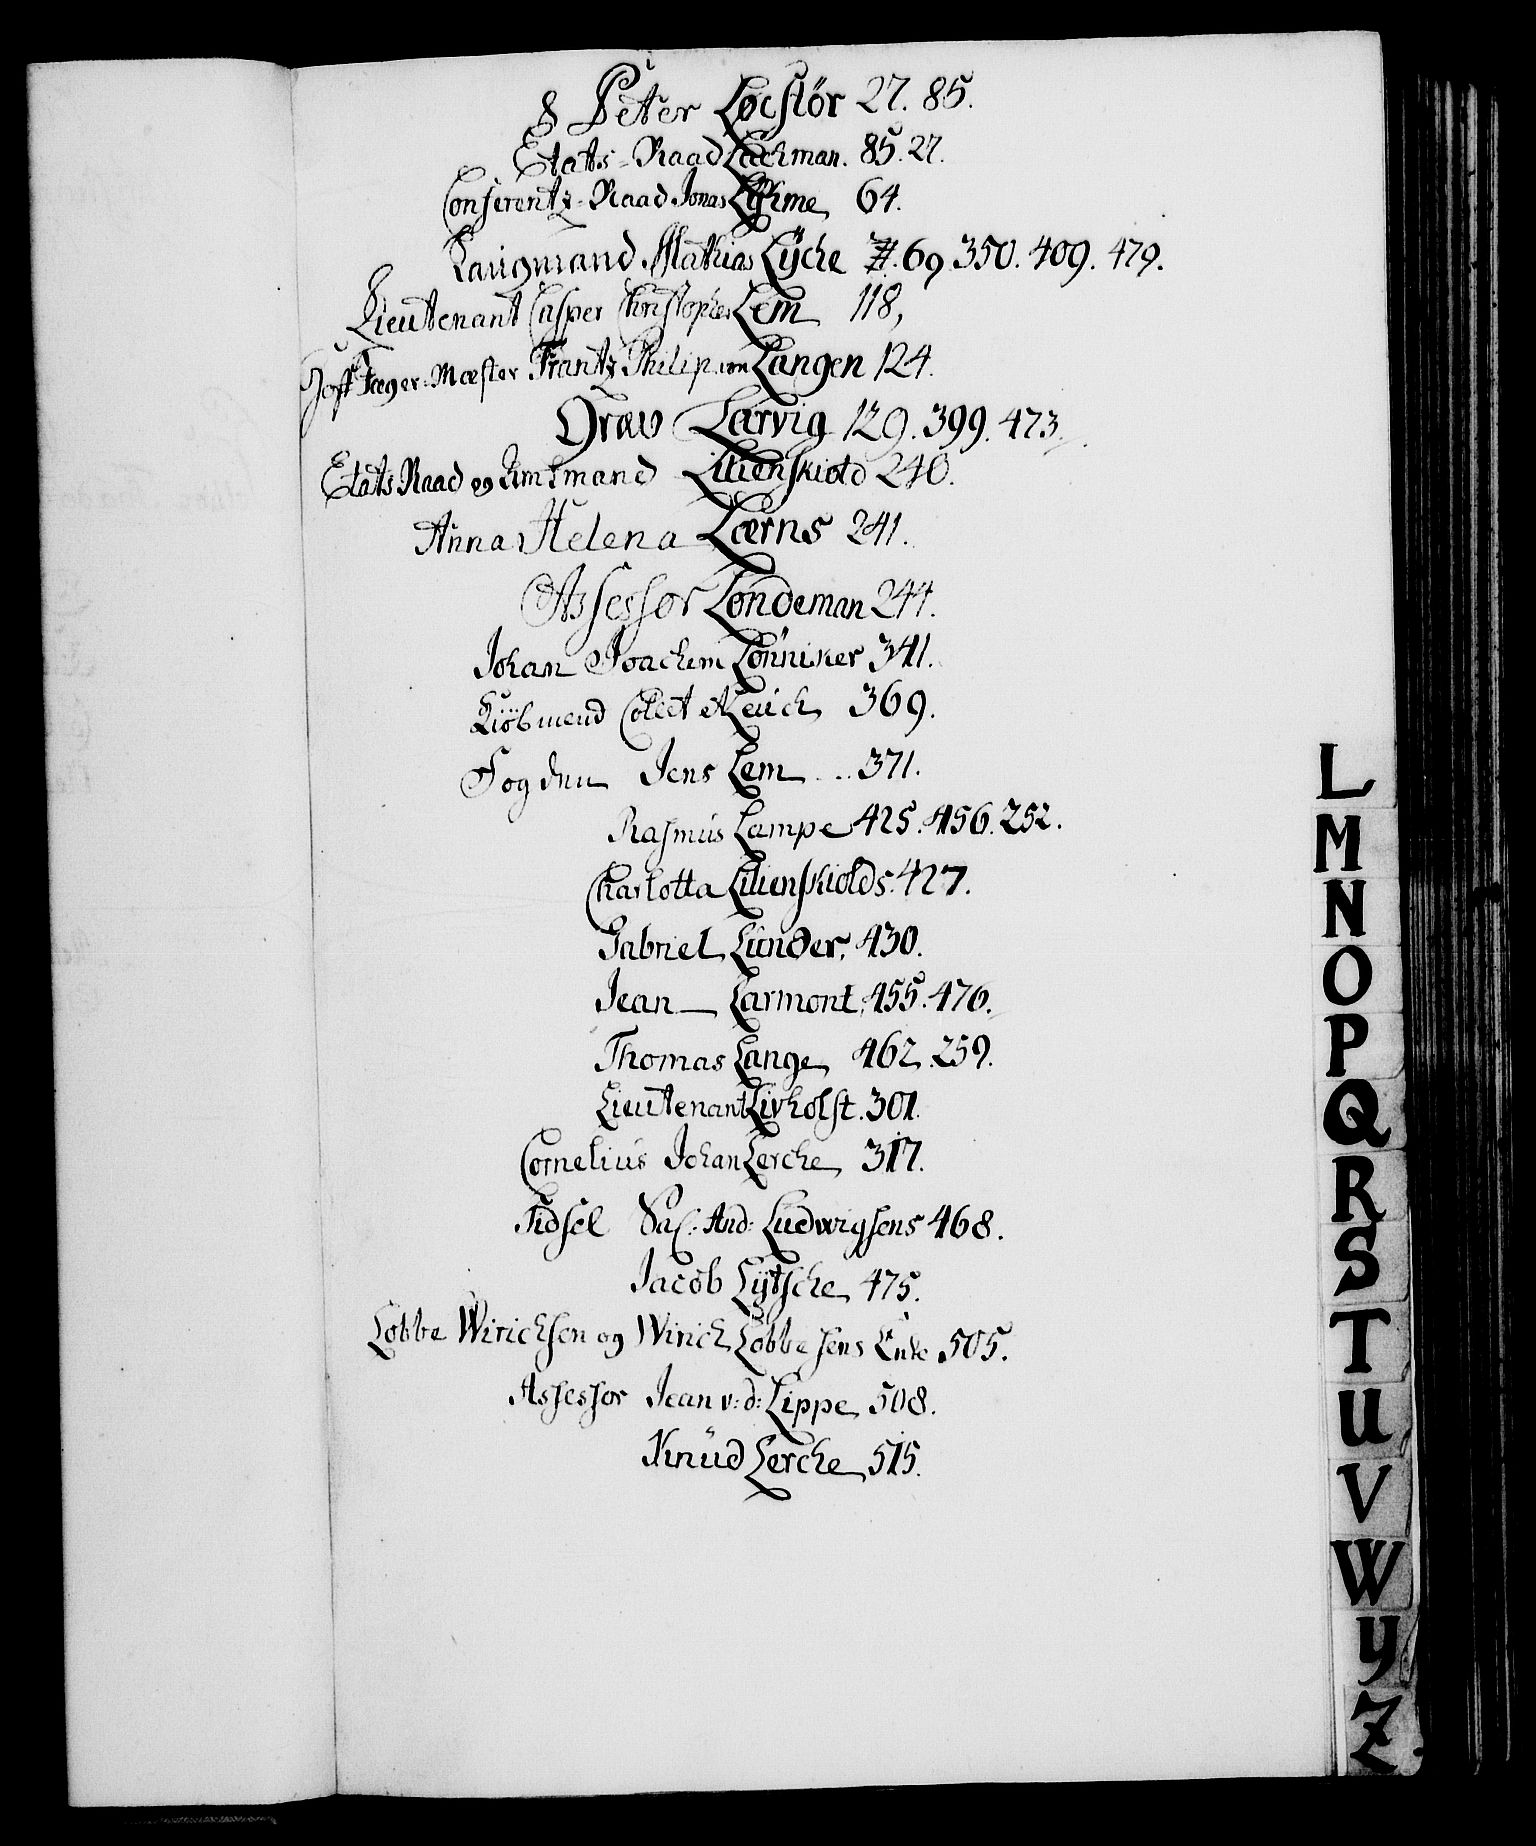 & Peter Løcstör 27. 85.
Etats-Raad Lachman. 85. 27.
Conferentz-Raad Jonas Lÿhme 64.
Laugmand Mathias Lÿche 69. 350. 409. 479.
Lieutenant Casper Christopher Lem 118,
Hoff Jæger-Mæster Frantz Philip von Langen 124.
Græv Larvig 129. 399. 473.
Etats Raad og Amtmand Lilienskiold 240.
Anna Helena Lærns 241.
Assessor Londeman 244.
Johan Joachem Lönniker 341.
Kiöbmend Collet & Leuch 369.
Fogden Jens Lem 371.
Rasmus Lampe 425. 456. 252.
Charlotta Lilienskiolds. 427.
Gabriel Lunder, 430.
Jean Larmont, 455. 476.
Thomas Lange 462. 259.
Lieutenant Livholst. 301.
Cornelius Johan Lerche 317.
Sidsel Sal: And: Ludwigsens 468.
Jacob Lÿtsche 475.
Lobbe Wirichsen og Wirich Lobbesens Enke 505.
Assessor Jean v: d: Lippe 508.
Knud Lerche 515.
L
M
N
O
P
Q
R
S
T
U
V
W
Y
Z